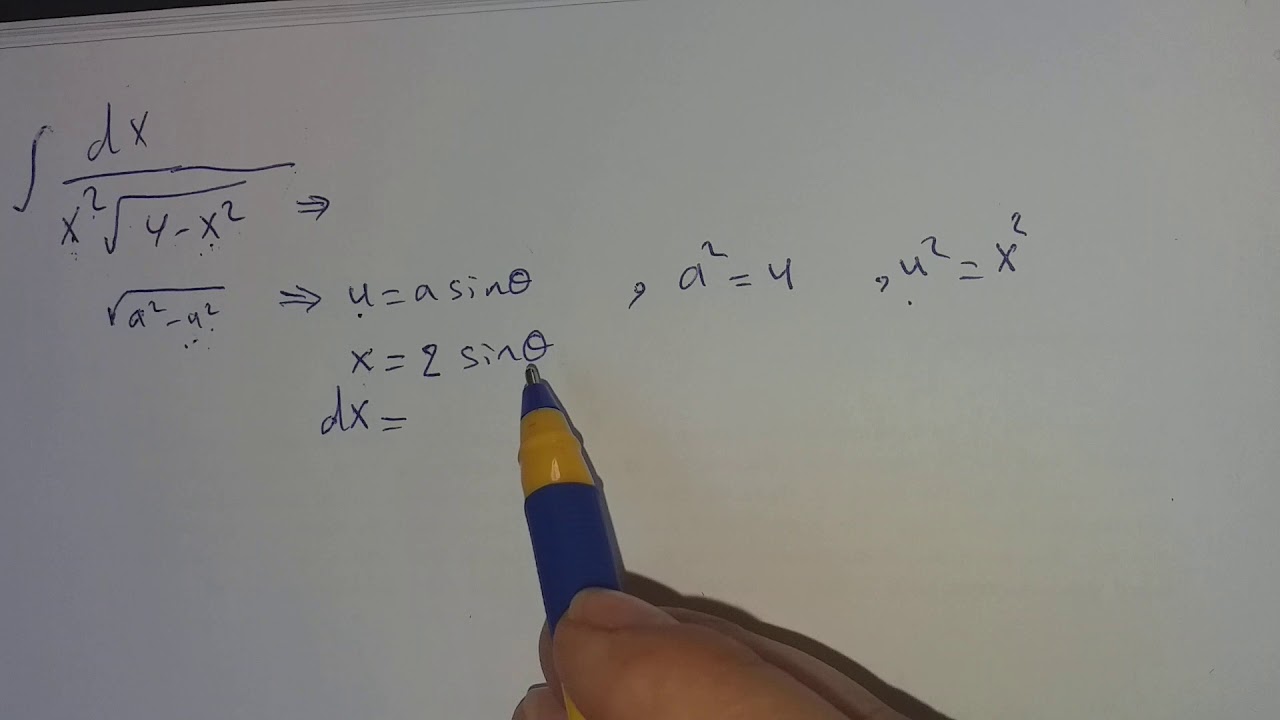 ∫ dx / x²√(4-x²) ⇒
√(a²-u²) ⇒ u = a sinθ , a² = 4 , u² = x²
x = 2 sinθ
dx =